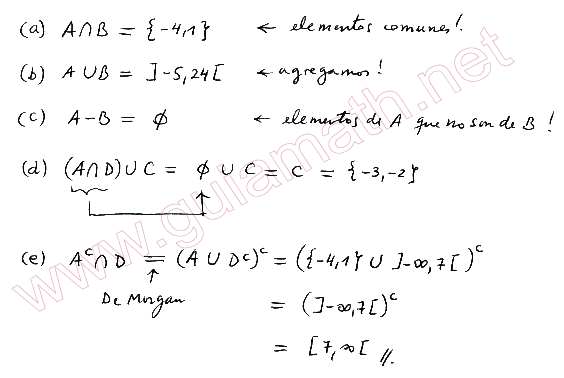 (a) A∩B = {-4,1} ← elementos comunes!
(b) A∪B = ]-5,24[ ← agregamos!
(c) A-B = ∅ ← elementos de A que no son de B!
(d) (A∩D)∪C = ∅ ∪ C = C = {-3,-2}
(e) Aᶜ∩D = (A ∪ Dᶜ)ᶜ = ({-4,1} ∪ ]-∞,7[)ᶜ
↑
De Morgan
= (]-∞,7[)ᶜ
= [7,∞[ //.
www.guiamath.net